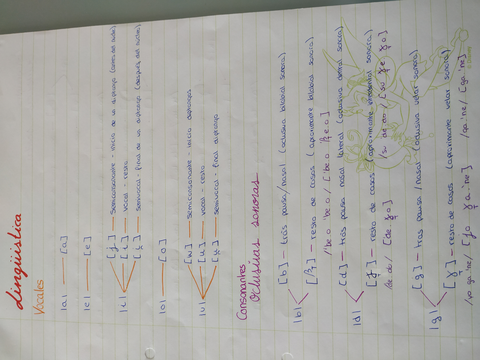 lingüística
Vocales
|a| — [a]
|e| — [e]
[j] — semiconsonante - inicio de un diptongo (antes del núcleo)
|i| — [i] — vocal - resto
[i̯] — semivocal - final de un diptongo (después del núcleo)
|o| — [o]
[w] — semiconsonante - inicio diptongo
|u| — [u] — vocal - resto
[u̯] — semivocal - final diptongo
Consonantes
Oclusivas sonoras
[b] - tras pausa/nasal (oclusiva bilabial sonora)
|b|
[β̞] - resto de casos (aproximante bilabial sonora)
[d] - tras pausa nasal lateral (oclusiva dental sonora)
|d|
resto de casos (aproximante sonora)
[g] - tras pausa/nasal (oclusiva velar sonora)
|g|
resto de casos (aproximante velar sonora)